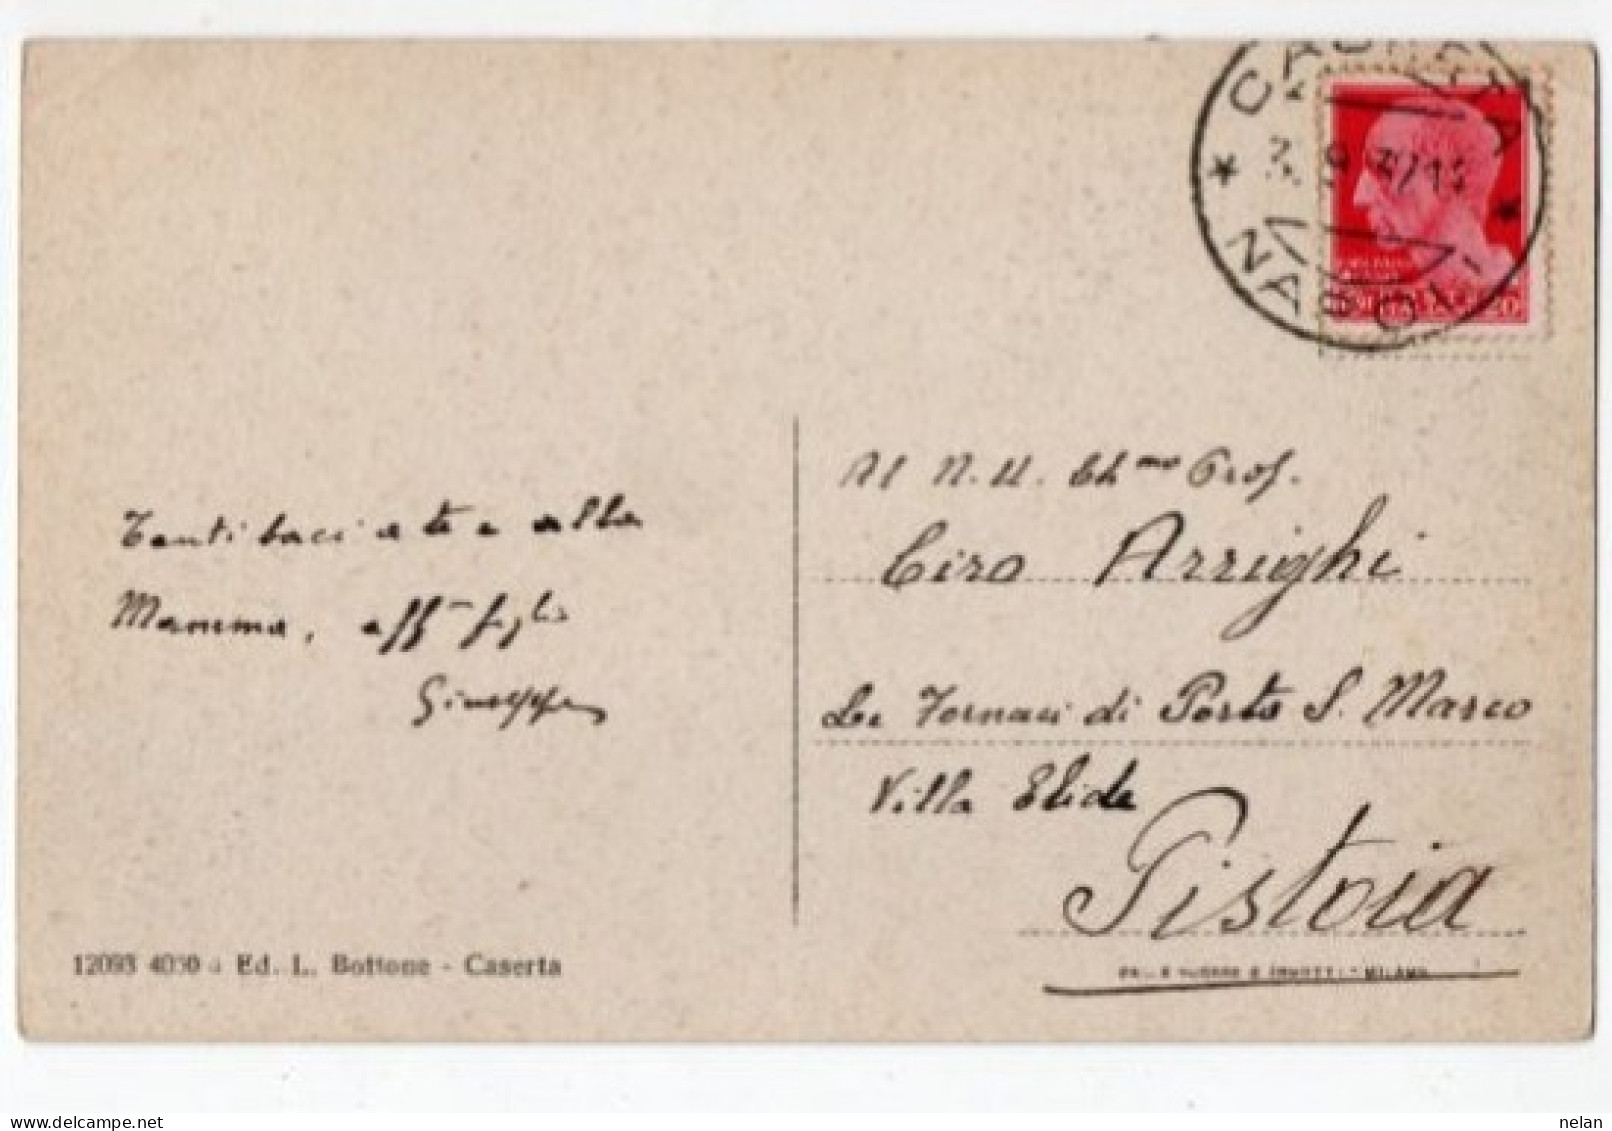 CASERTA
NAPOLI
Al N. U. Ch.mo Prof.
Ciro Arrighi
Le Fornaci di Porta S. Marco
Villa Elide
Pistoia
Tanti baci a te e alla
Mamma, aff.mo figlio
Giuseppe
12093 4030 Ed. L. Bottone - Caserta
MILANO
www.delcampe.net
nelan